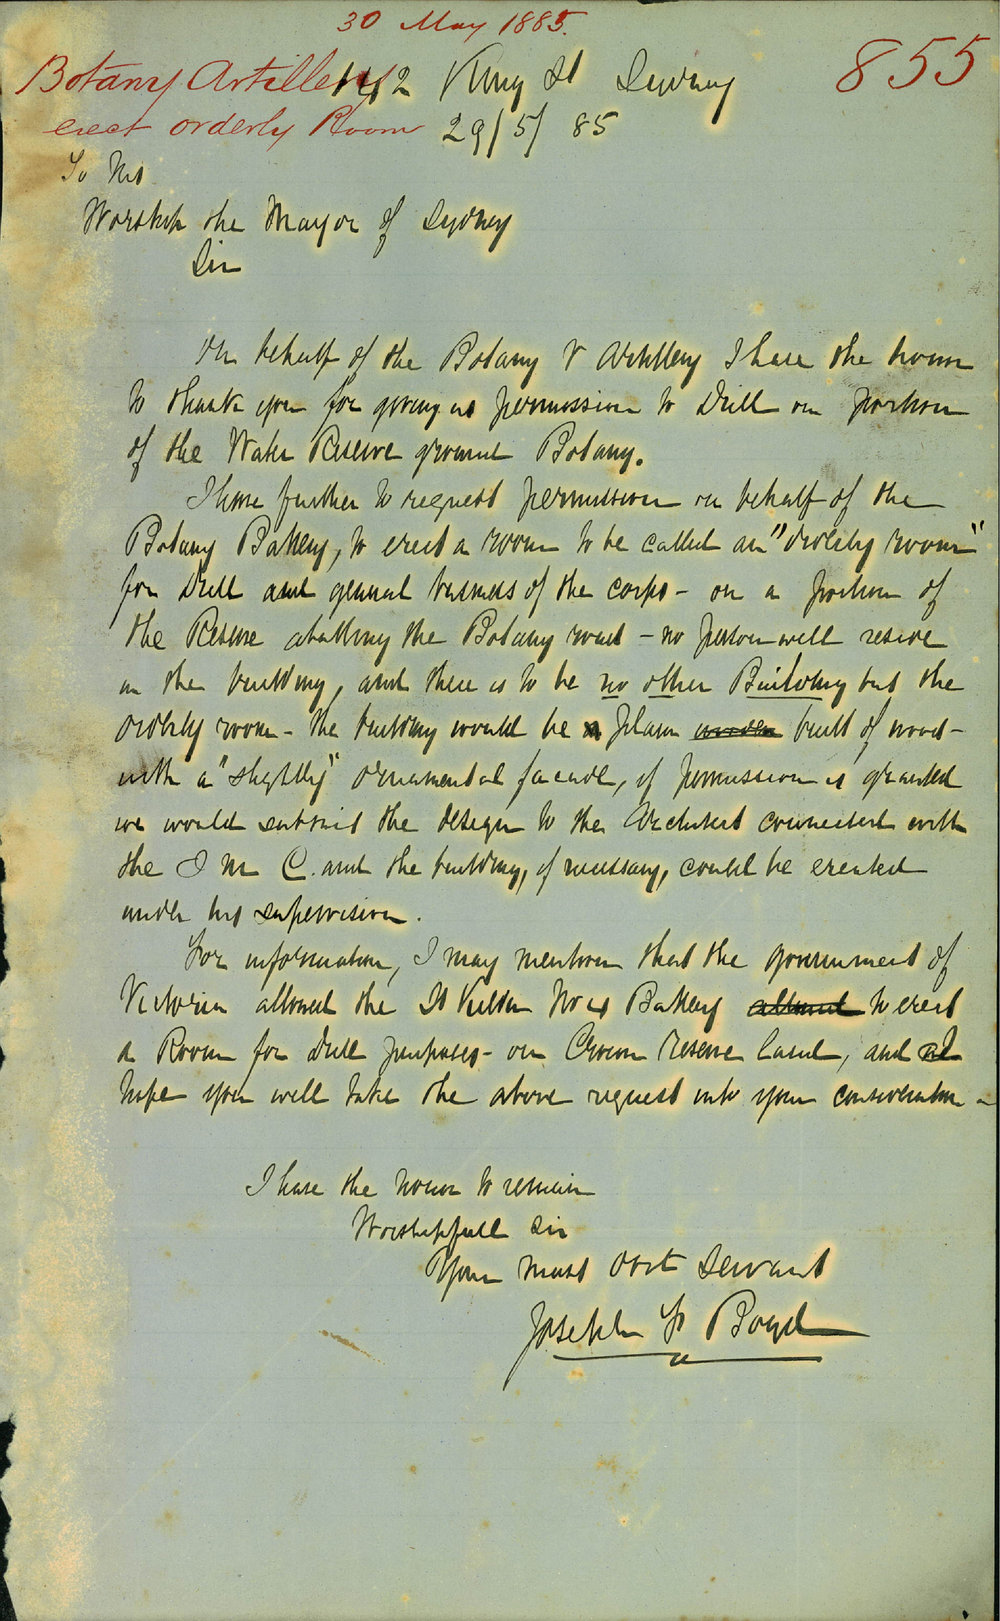 30 May 1885.
855
Botany Artillery
erect orderly Room
142 King St Sydney
29/5/85
To His
Worship the Mayor of Sydney
Sir
On behalf of the Botany V Artillery I have the honor
to thank you for giving us permission to Drill on portion
of the Water Reserve ground Botany.
I have further to request permission on behalf of the
Botany Battery, to erect a room to be called an "orderly room"
for Drill and general business of the corps - on a portion of
the Reserve abutting the Botany road - no person will reside
in the building, and there is to be no other Building but the
orderly room - the building would be a plain wooden built of wood -
with a "slightly" ornamental facade, if permission is granted
we would submit the design to the Architect connected with
the I M C. and the building, if necessary, could be erected
under his supervision.
For information, I may mention that the government of
Victoria allowed the St Kilda Battery allowed to erect
a Room for Drill purposes - on Crown reserve land, and
hope you will take the above request into your consideration -
I have the honor to remain
Worshipfull Sir
Your most Obt Servant
Joseph Boyd